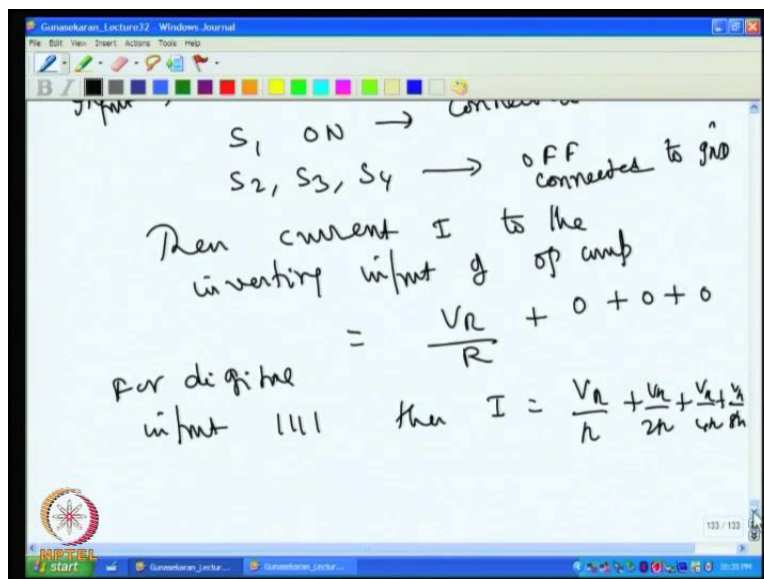 Gunasekaran_Lecture32 - Windows Journal
File Edit View Insert Actions Tools Help
B I
S1 ON →
S2, S3, S4 → OFF
connected to gND
Then current I to the
inverting input of op amp
= VR/R + 0 + 0 + 0
For digital
input 1111 then I = VR/R + VR/2R + VR/4R + VR/8R
133 / 133
NPTEL
start Gunasekaran_Lectur... Gunasekaran_Lectur... 10:35 PM